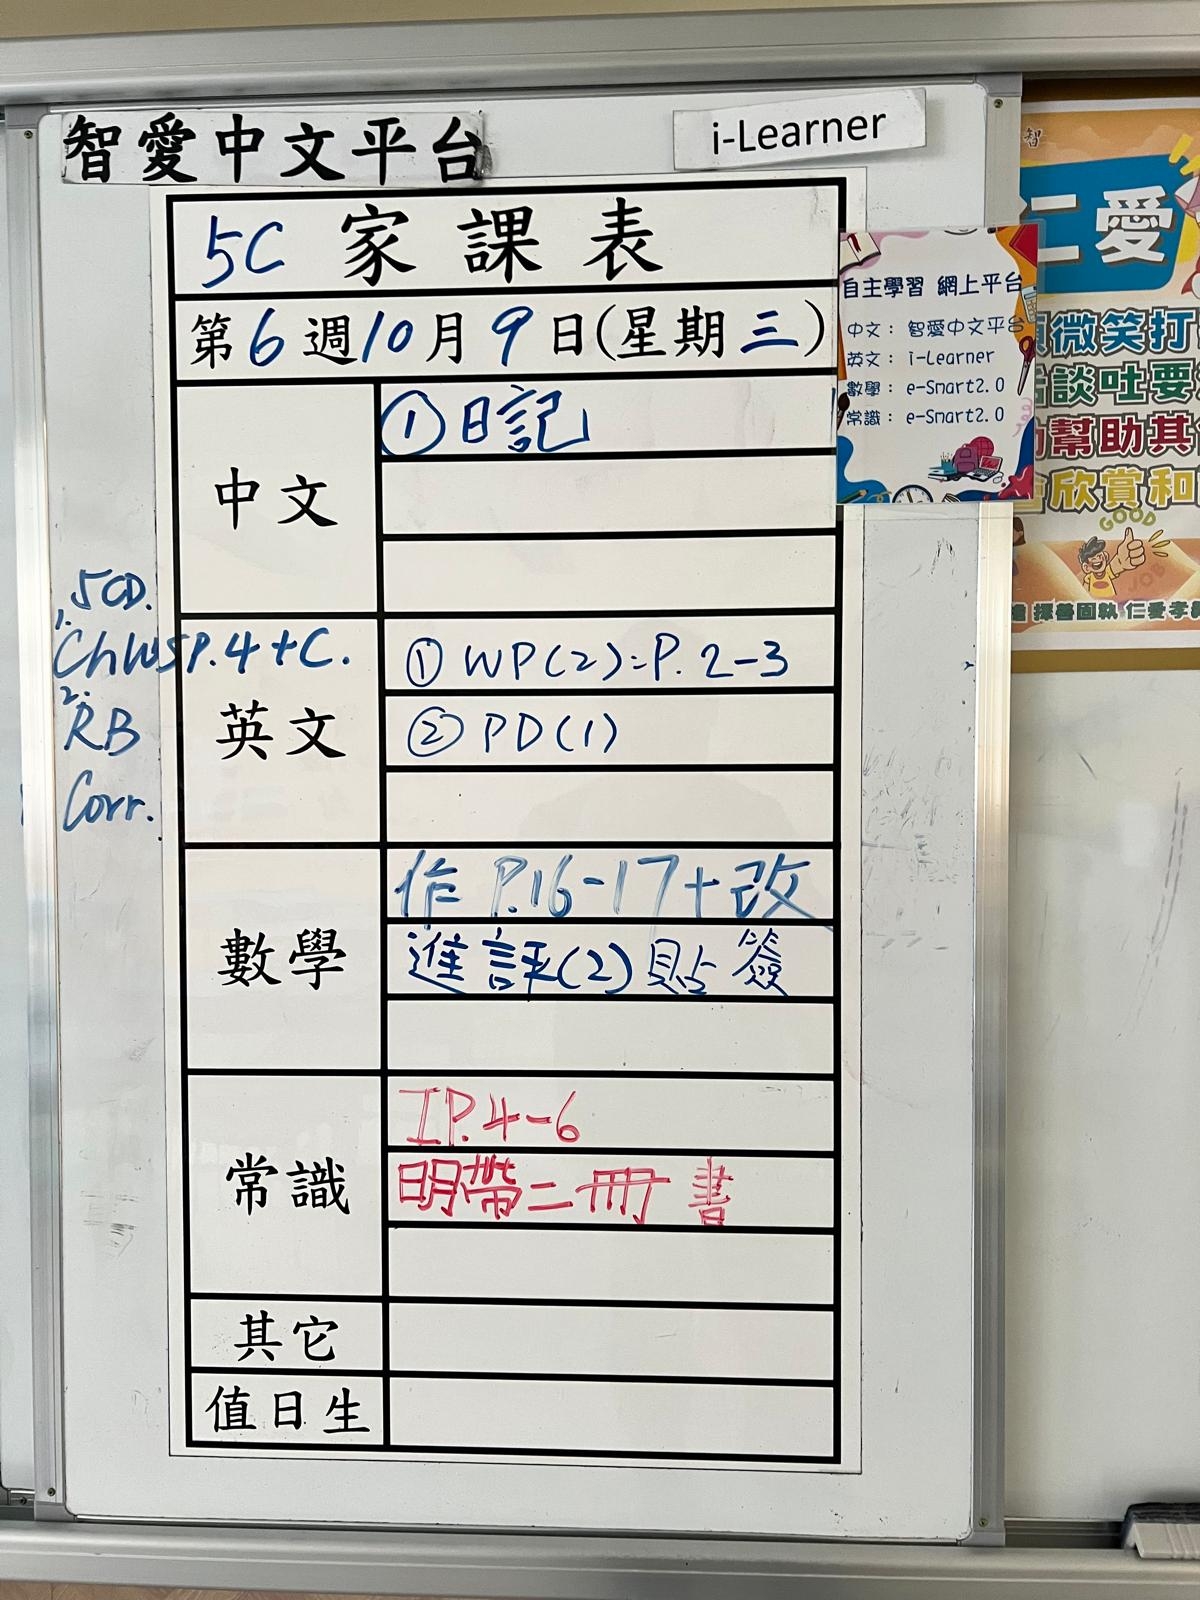 智愛中文平台
i-Learner
5C 家課表
第6週10月9日(星期三)
中文
①日記
英文
① WP(2):P.2-3
② PD(1)
5CD.
1. ChWSP.4+C.
2. RB
Corr.
數學
作 P.16-17+改
進評(2)貼簽
常識
IP.4-6
明帶二冊書
其它
值日生
自主學習 網上平台
中文： 智愛中文平台
英文： i-Learner
數學： e-Smart2.0
常識： e-Smart2.0
智
仁愛
微笑打
談吐要
幫助其
欣賞和
GOOD
JOB
擇善固執 仁愛孝